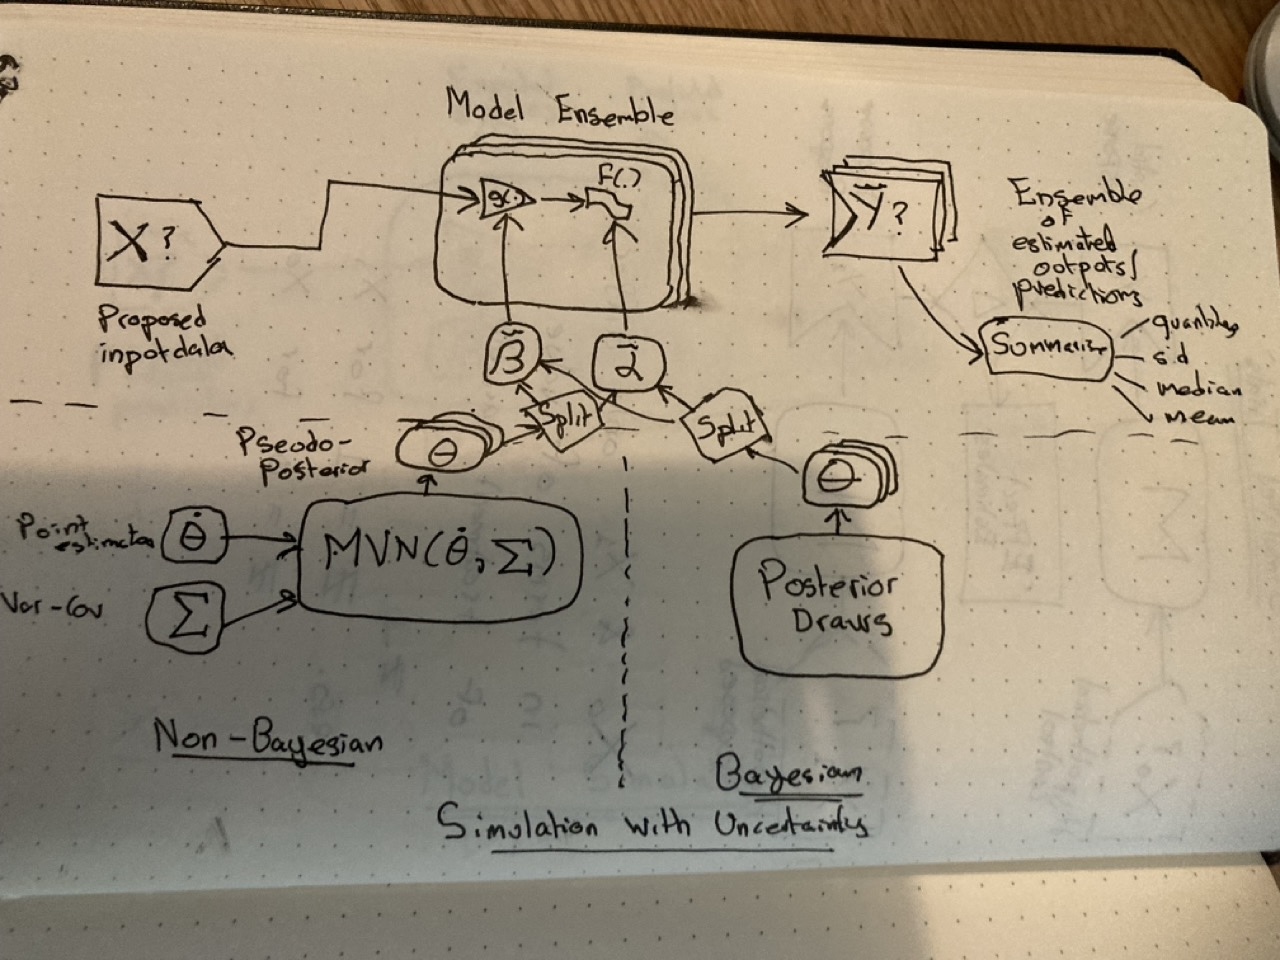 Model Ensemble
g(.)
F(.)
X ?
Proposed
input data
Y ?
Ensemble
of
estimated
outputs/
predictions
Summarize
quantiles
s.d
median
mean
β
α
Split
Split
Pseudo-
Posterior
θ
θ
Point
estimates
θ
MVN(θ, Σ)
Var-Cov
Σ
Posterior
Draws
Non-Bayesian
Bayesian
Simulation with Uncertainty